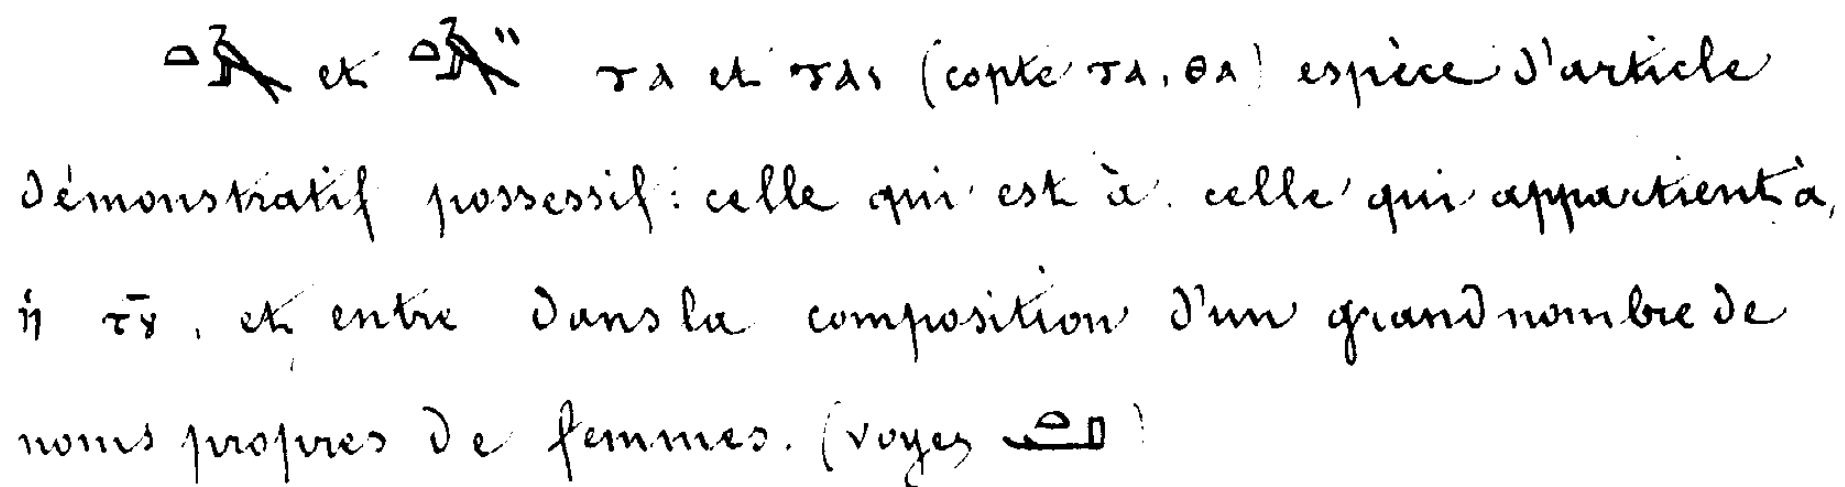 𓏏𓅯 et 𓏏𓅯" ⲧⲁ et ⲧⲁⲓ (copte ⲧⲁ, ⲑⲁ) espèce d'article
démonstratif possessif: celle qui est à, celle qui appartient à,
ἡ τȣ̄, et entre dans la composition d'un grand nombre de
noms propres de femmes. (voyez )